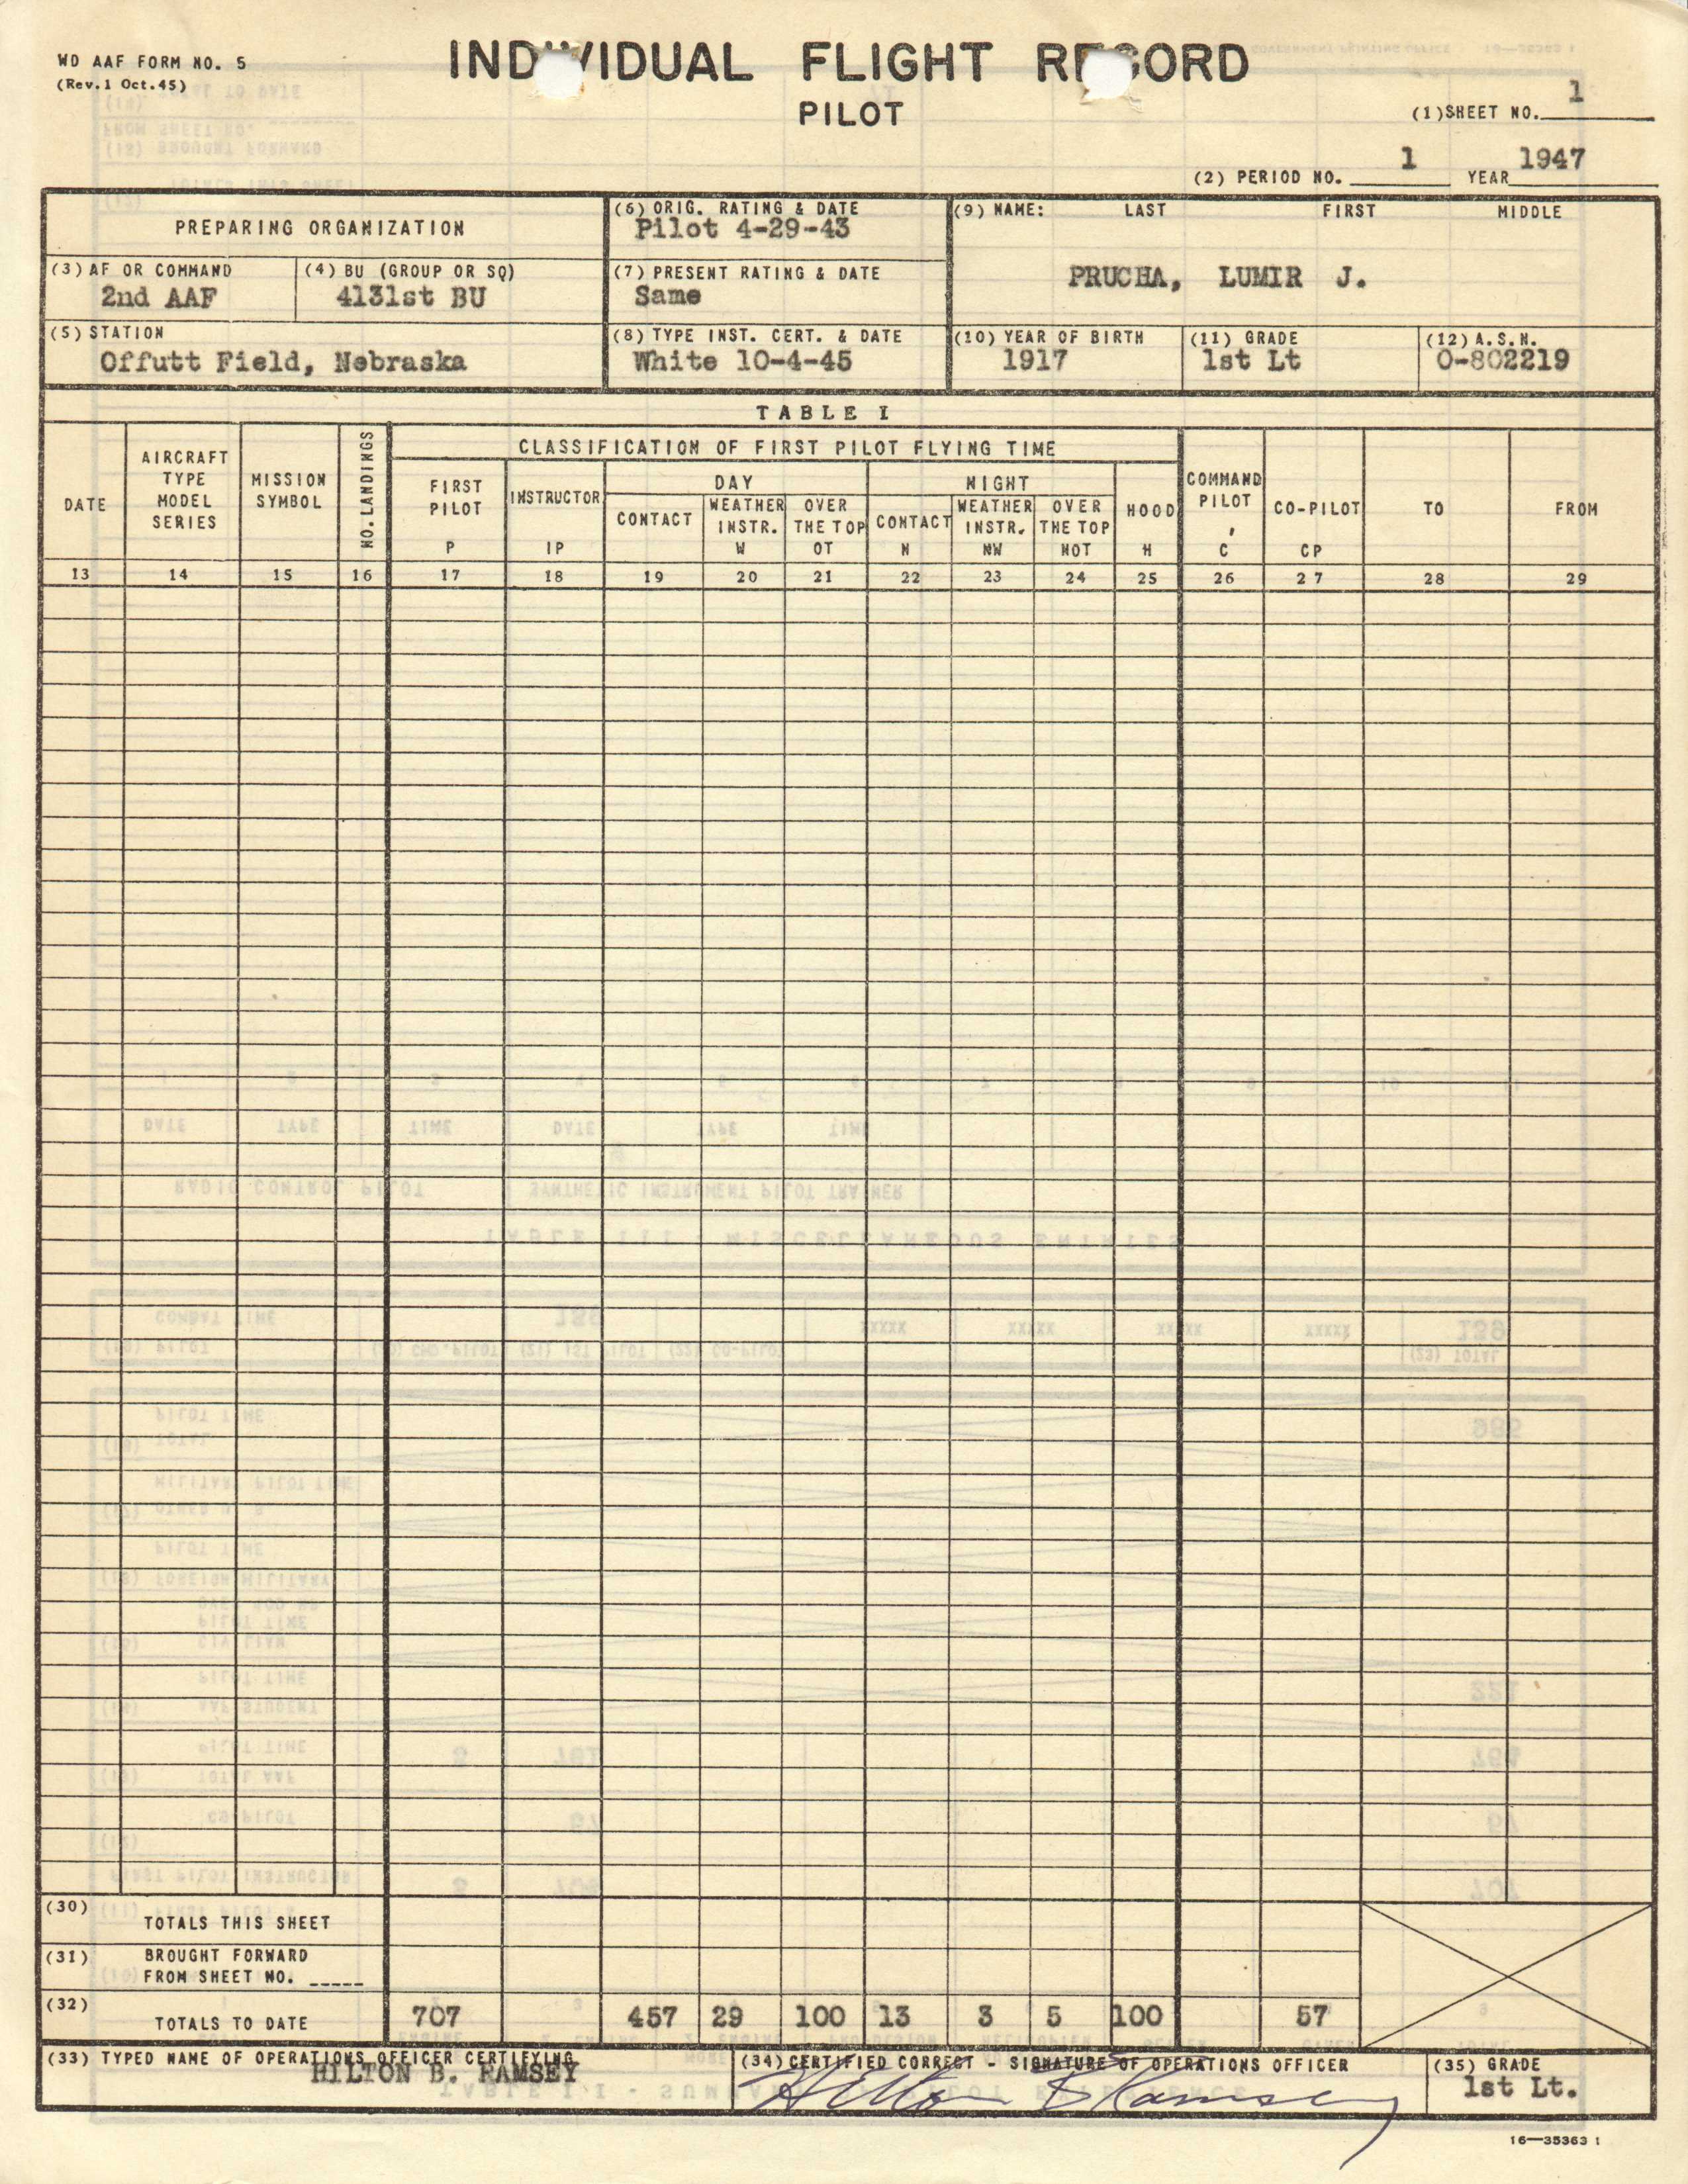 WD AAF FORM NO. 5
(Rev.1 Oct.45)
INDIVIDUAL FLIGHT RECORD
PILOT
(1)SHEET NO. 1
(2) PERIOD NO. 1 YEAR 1947
PREPARING ORGANIZATION
(3)AF OR COMMAND
2nd AAF
(4)BU (GROUP OR SQ)
4131st BU
(5)STATION
Offutt Field, Nebraska
(6) ORIG. RATING & DATE
Pilot 4-29-43
(7) PRESENT RATING & DATE
Same
(8) TYPE INST. CERT. & DATE
White 10-4-45
(9) NAME: LAST FIRST MIDDLE
PRUCHA, LUMIR J.
(10) YEAR OF BIRTH
1917
(11) GRADE
1st Lt
(12) A.S.N.
O-802219
TABLE I
DATE
AIRCRAFT
TYPE
MODEL
SERIES
MISSION
SYMBOL
NO. LANDINGS
CLASSIFICATION OF FIRST PILOT FLYING TIME
FIRST
PILOT
P
INSTRUCTOR
IP
DAY
CONTACT
WEATHER
INSTR.
W
OVER
THE TOP
OT
NIGHT
CONTACT
N
WEATHER
INSTR.
NW
OVER
THE TOP
NOT
HOOD
H
COMMAND
PILOT
C
CO-PILOT
CP
TO
FROM
13 14 15 16 17 18 19 20 21 22 23 24 25 26 27 28 29
(30)
TOTALS THIS SHEET
(31) BROUGHT FORWARD
FROM SHEET NO. _____
(32)
TOTALS TO DATE 707 457 29 100 13 3 5 100 57
(33) TYPED NAME OF OPERATIONS OFFICER CERTIFYING
HILTON B. RAMSEY
(34) CERTIFIED CORRECT - SIGNATURE OF OPERATIONS OFFICER
Hilton B Ramsey
(35) GRADE
1st Lt.
16—35363 1